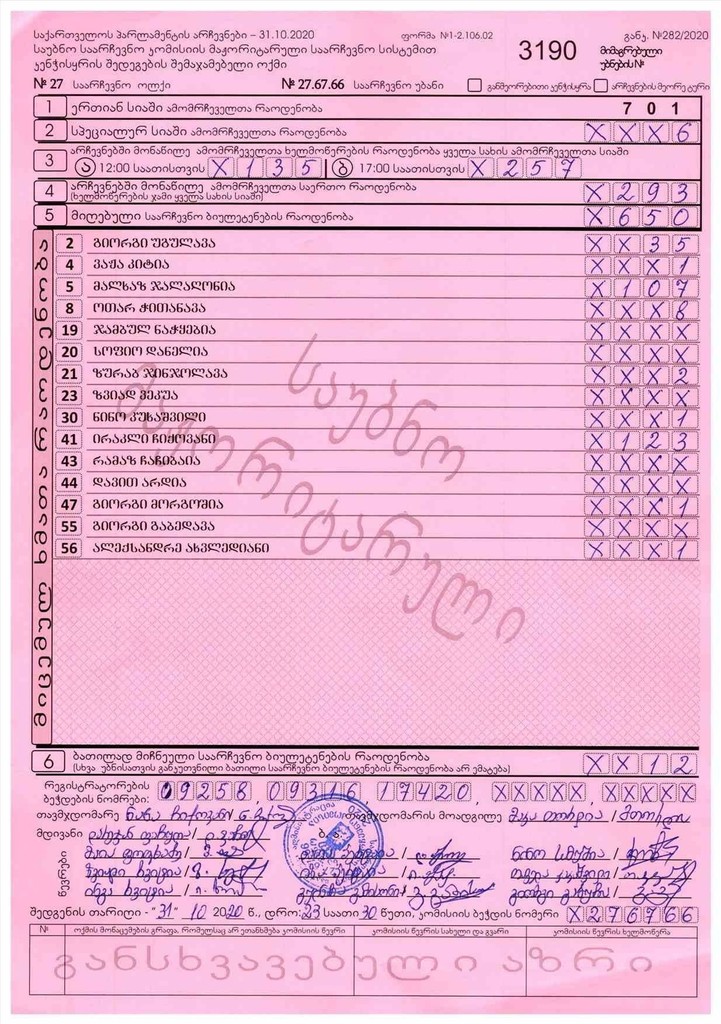 საქართველოს პარლამენტის არჩევნები – 31.10.2020 ფორმა №1-2.106.02 განკ. №282/2020
საუბნო საარჩევნო კომისიის მაჟორიტარული საარჩევნო სისტემით 3190 მიმაგრებული
კენჭისყრის შედეგების შემაჯამებელი ოქმი უბნების №
№ 27 საარჩევნო ოლქი № 27.67.66 საარჩევნო უბანი განმეორებითი კენჭისყრა არჩევნების მეორე ტური
1 ერთიან სიაში ამომრჩეველთა რაოდენობა 701
2 სპეციალურ სიაში ამომრჩეველთა რაოდენობა XXX6
3 არჩევნებში მონაწილე ამომრჩეველთა ხელმოწერების რაოდენობა ყველა სახის ამომრჩეველთა სიაში
ა 12:00 საათისთვის X135 ბ 17:00 საათისთვის X257
4 არჩევნებში მონაწილე ამომრჩეველთა საერთო რაოდენობა X293
(ხელმოწერების ჯამი ყველა სახის სიაში)
5 მიღებული საარჩევნო ბიულეტენების რაოდენობა X650
მიცემულ ხმათა რაოდენობა
2 გიორგი უგულავა XX35
4 ვაჟა კიტია XXX1
5 მალხაზ ჯალაღონია X107
8 ოთარ ჭითანავა XXX8
19 ჯამბულ ნაჭყებია XXXX
20 სოფიო დანელია XXXX
21 ზურაბ ჯინჯოლავა XXX2
23 ზვიად შეკუა XXXX
30 ნინო კუხაშვილი XXX1
41 ირაკლი ჩიქოვანი X123
43 რამაზ ჩაჩიბაია XXXX
44 დავით არდია XXXX
47 გიორგი მორგოშია XXX1
55 გიორგი გაბედავა XXXX
56 ალექსანდრე ახვლედიანი XXX1
საუბნო
მაჟორიტარული
6 ბათილად მიჩნეული საარჩევნო ბიულეტენების რაოდენობა XX12
(სხვა უბნისათვის განკუთვნილი ბათილი საარჩევნო ბიულეტენების რაოდენობა არ ემატება)
რეგისტრატორების
ბეჭდების ნომრები: 09258 09316 17420, XXXXX, XXXXX
თავმჯდომარე თავმჯდომარის მოადგილე
მდივანი ბ.ა.
წევრები
შედგენის თარიღი - "31" 10 2020 წ., დრო: 23 საათი 30 წუთი, კომისიის ბეჭდის ნომერი X276766
№ ოქმის მონაცემების გრაფა, რომელსაც არ ეთანხმება კომისიის წევრი კომისიის წევრის სახელი და გვარი კომისიის წევრის ხელმოწერა
განსხვავებული აზრი